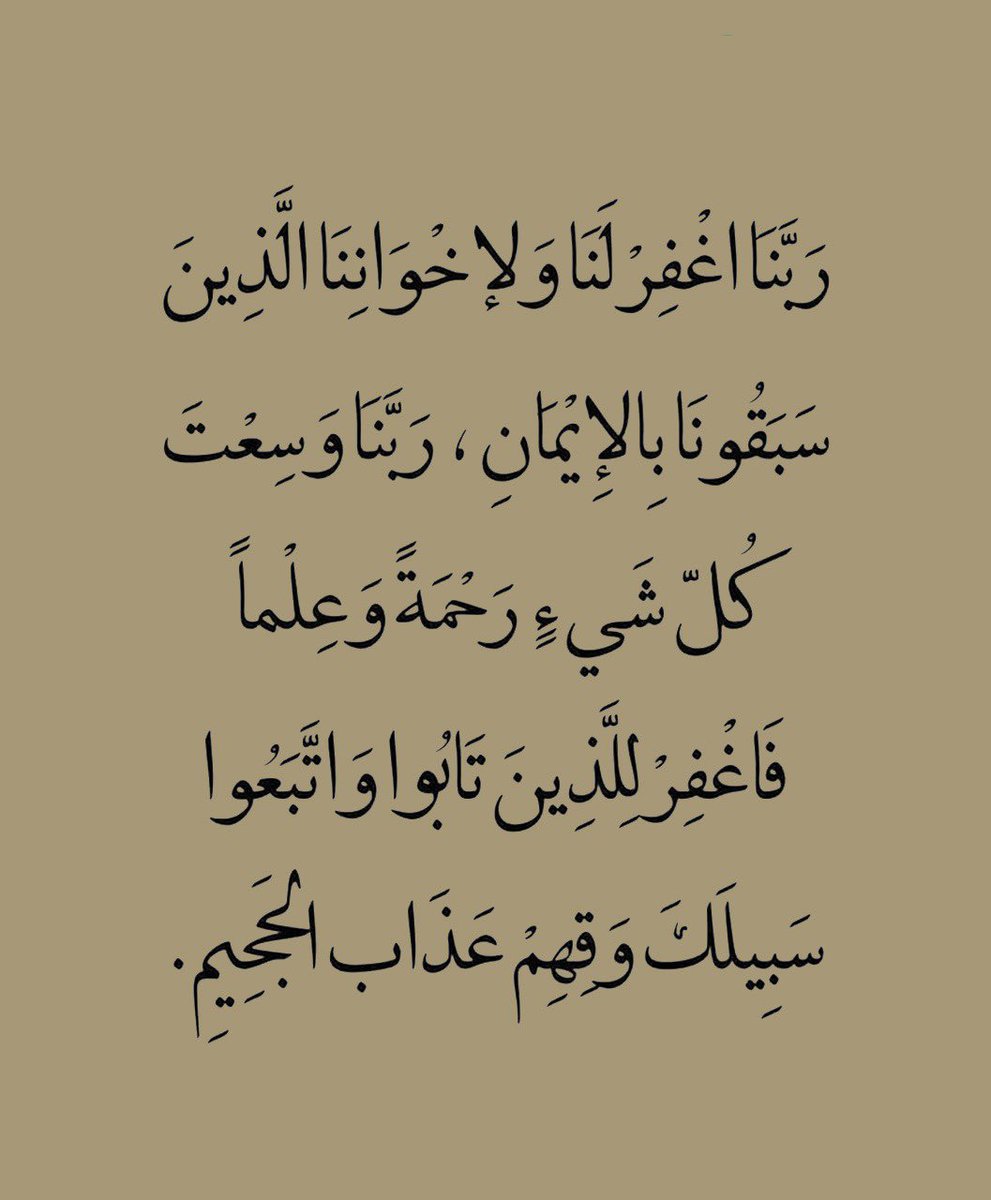 رَبَّنَا اغْفِرْ لَنَا وَلإخْوَانِنَا الَّذِينَ
سَبَقُونَا بِالإِيْمَانِ ، رَبَّنَا وَسِعْتَ
كُلّ شَيءٍ رَحْمَةً وَعِلْماً
فَاغْفِرْ لِلَّذِينَ تَابُوا وَاتَّبَعُوا
سَبِيلَكَ وَقِهِمْ عَذَاب الجَحِيمِ.